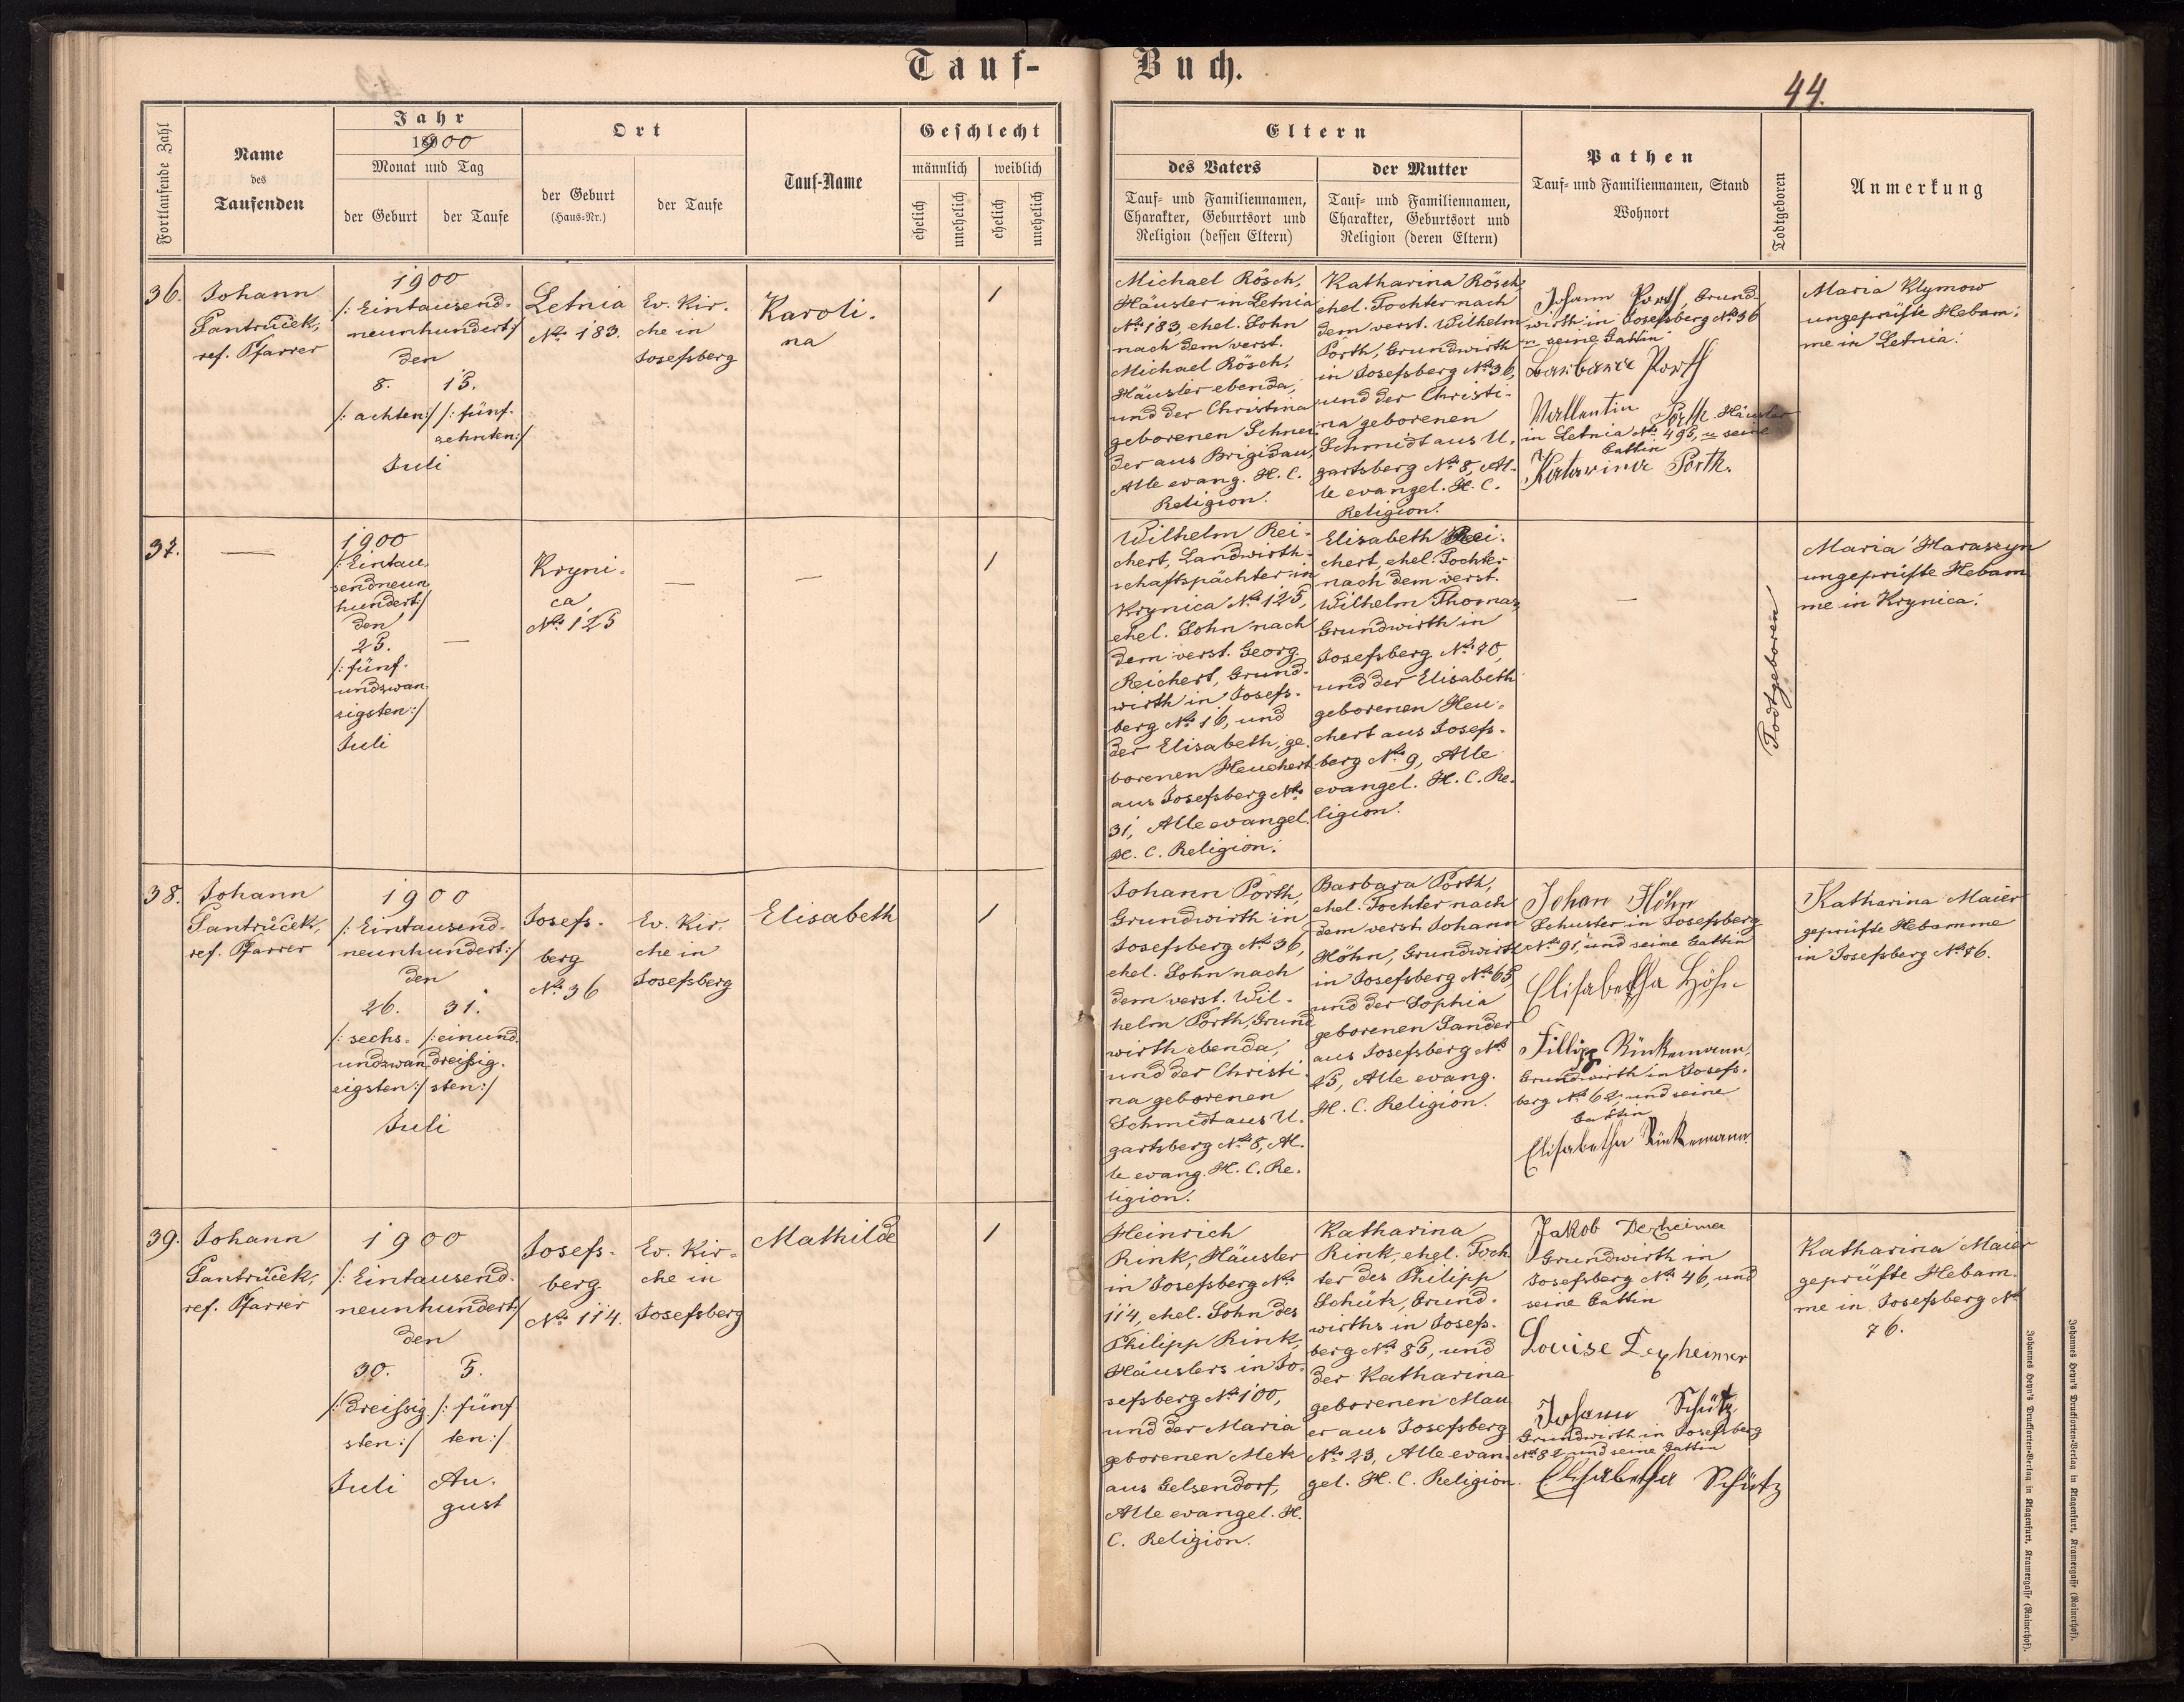 Tauf-
Buch.
44.
Fortlaufende Zahl
Name
des
Taufenden
Jahr
1900
Monat und Tag
der Geburt
der Taufe
Ort
der Geburt
(Haus-Nr.)
der Taufe
Tauf-Name
Geschlecht
männlich
weiblich
ehelich
unehelich
ehelich
unehelich
Eltern
des Vaters
Tauf- und Familiennamen,
Charakter, Geburtsort und
Religion (dessen Eltern)
der Mutter
Tauf- und Familiennamen,
Charakter, Geburtsort und
Religion (deren Eltern)
Pathen
Tauf- und Familiennamen, Stand
Wohnort
Todtgeboren
Anmerkung
36.
Johann
Jantrůček,
ref. Pfarrer
1900
/: Eintausend-
neunhundert :/
den
8. 15.
/: achten :/ /: fünf-
zehnten :/
Juli
Letnia
No. 183.
Ev. Kir-
che in
Josefsberg
Karoli-
na
1
Michael Rösch,
Häusler in Letnia
No. 183, ehel. Sohn
nach dem verst.
Michael Rösch,
Häusler ebenda,
und der Christina
geborenen Schnei-
der aus Brigidau,
Alle evang. H. C.
Religion.
Katharina Rösch,
ehel. Tochter nach
dem verst. Wilhelm
Porth, Grundwirth
in Josefsberg No. 36,
und der Christi-
na geborenen
Schmidt aus U-
gartsberg No. 8, Al-
le evangel. H. C.
Religion.
Johann Porth, Grund-
wirth in Josefsberg No. 36
u. seine Gattin
Barbara Porth
Wallentin Porth Häusler
in Letnia No. 495, u. seine
Gattin
Katarina Porth.
Maria Klymow
ungeprüfte Hebam-
me in Letnia.
37.
—
1900
/: Eintau-
sendneun-
hundert :/
den
25.
/: fünf-
undzwan-
zigsten :/
Juli
—
Kryni-
ca
No. 125
—
—
1
Wilhelm Rei-
chert, Landwirth-
schaftspächter in
Krynica No. 125,
ehel. Sohn nach
dem verst. Georg
Reichert, Grund-
wirth in Josefs-
berg No. 16, und
der Elisabeth, ge-
borenen Heuchert
aus Josefsberg No.
31, Alle evangel.
H. C. Religion.
Elisabeth Rei-
chert, ehel. Tochter
nach dem verst.
Wilhelm Thomas,
Grundwirth in
Josefsberg No. 70,
und der Elisabeth
geborenen Heu-
chert aus Josefs-
berg No. 9, Alle
evangel. H. C. Re-
ligion.
—
Todtgeboren
Maria Haraszyn
ungeprüfte Hebam-
me in Krynica.
38.
Johann
Jantrůček,
ref. Pfarrer
1900
/: Eintausend-
neunhundert :/
den
26. 31.
/: sechs- /: einund-
undzwan- dreißig-
zigsten :/ sten :/
Juli
Josefs-
berg
No. 36
Ev. Kir-
che in
Josefsberg
Elisabeth
1
Johann Porth,
Grundwirth in
Josefsberg No. 36,
ehel. Sohn nach
dem verst. Wil-
helm Porth, Grund-
wirth ebenda,
und der Christi-
na geborenen
Schmidt aus U-
gartsberg No. 8, Al-
le evang. H. C. Re-
ligion.
Barbara Porth,
ehel. Tochter nach
dem verst. Johann
Höhn, Grundwirth
in Josefsberg No. 65,
und der Sophia
geborenen Sander
aus Josefsberg No.
25, Alle evang.
H. C. Religion.
Johan Höhn
Schuster in Josefsberg
No. 91, und seine Gattin
Elisabetha Höhn
Fillipp Rinkemann,
Grundwirth in Josefs-
berg No. 62, und seine
Gattin
Elisabetha Rinkemann
Katharina Maier
geprüfte Hebamme
in Josefsberg No. 76.
39.
Johann
Jantrůček,
ref. Pfarrer
1900
/: Eintausend-
neunhundert :/
den
30. 5.
/: dreißig- /: fünf-
sten :/ ten :/
Juli Au-
gust
Josefs-
berg
No. 114.
Ev. Kir-
che in
Josefsberg
Mathilde
1
Heinrich
Rink, Häusler
in Josefsberg No.
114, ehel. Sohn des
Philipp Rink,
Häuslers in Jo-
sefsberg No. 100,
und der Maria
geborenen Mek
aus Gelsendorf,
Alle evangel. H.
C. Religion.
Katharina
Rink, ehel. Toch-
ter des Philipp
Schütz, Grund-
wirths in Josefs-
berg No. 85, und
der Katharina
geborenen Mau-
er aus Josefsberg
No. 23, Alle evan-
gel. H. C. Religion.
Jakob Dexheimer
Grundwirth in
Josefsberg No. 46, und
seine Gattin
Louise Dexheimer
Johann Schütz
Grundwirth in Josefsberg
No. 82 und seine Gattin
Elisabetha Schütz
Katharina Maier
geprüfte Hebam-
me in Josefsberg No.
76.
Johannes Heyn's Drucksorten-Verlag in Klagenfurt, Kramergasse (Rainerhof).
Johannes Heyn's Drucksorten-Verlag in Klagenfurt, Kramergasse (Rainerhof).